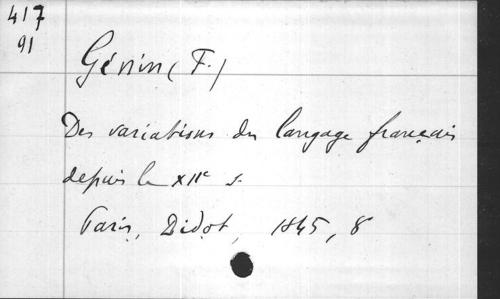 417
91
Génin (F.)
Des variations du langage français
depuis le XIIe s.
Paris, Didot, 1845, 8